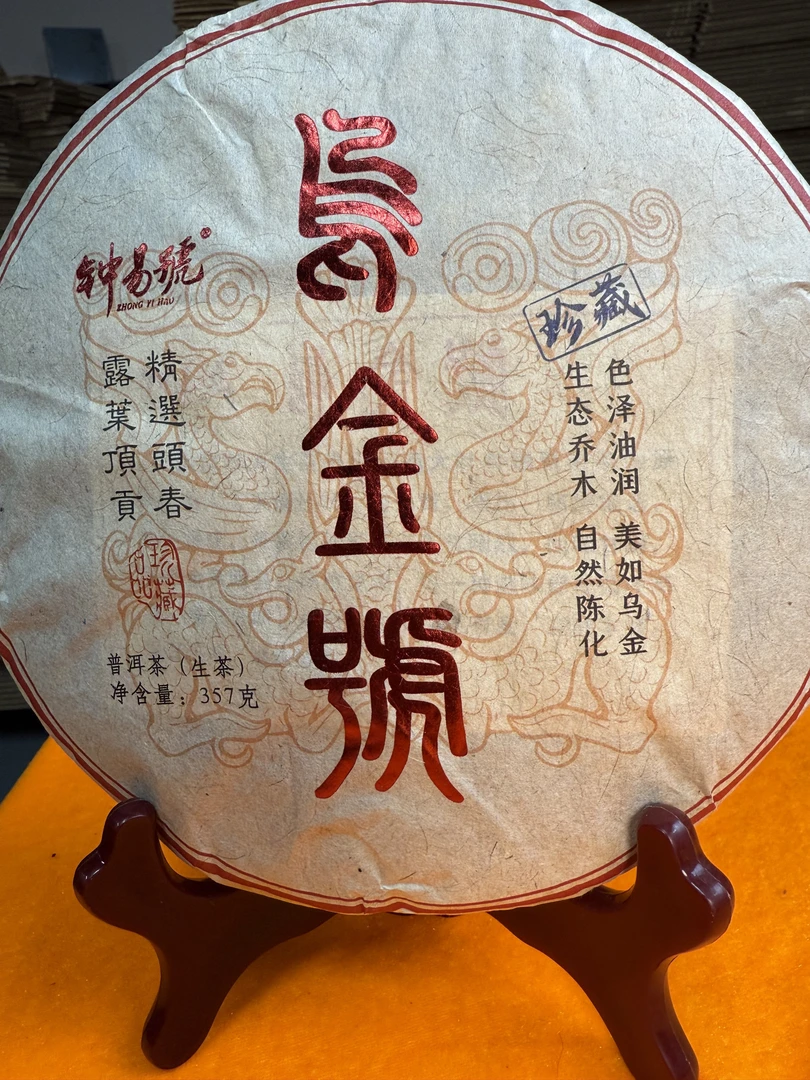 乌金號
钟易號
ZHONG YI HAO
精選頭春
露葉頂貢
珍藏
品
普洱茶（生茶）
净含量：357克
珍藏
色泽油润 美如乌金
生态乔木 自然陈化